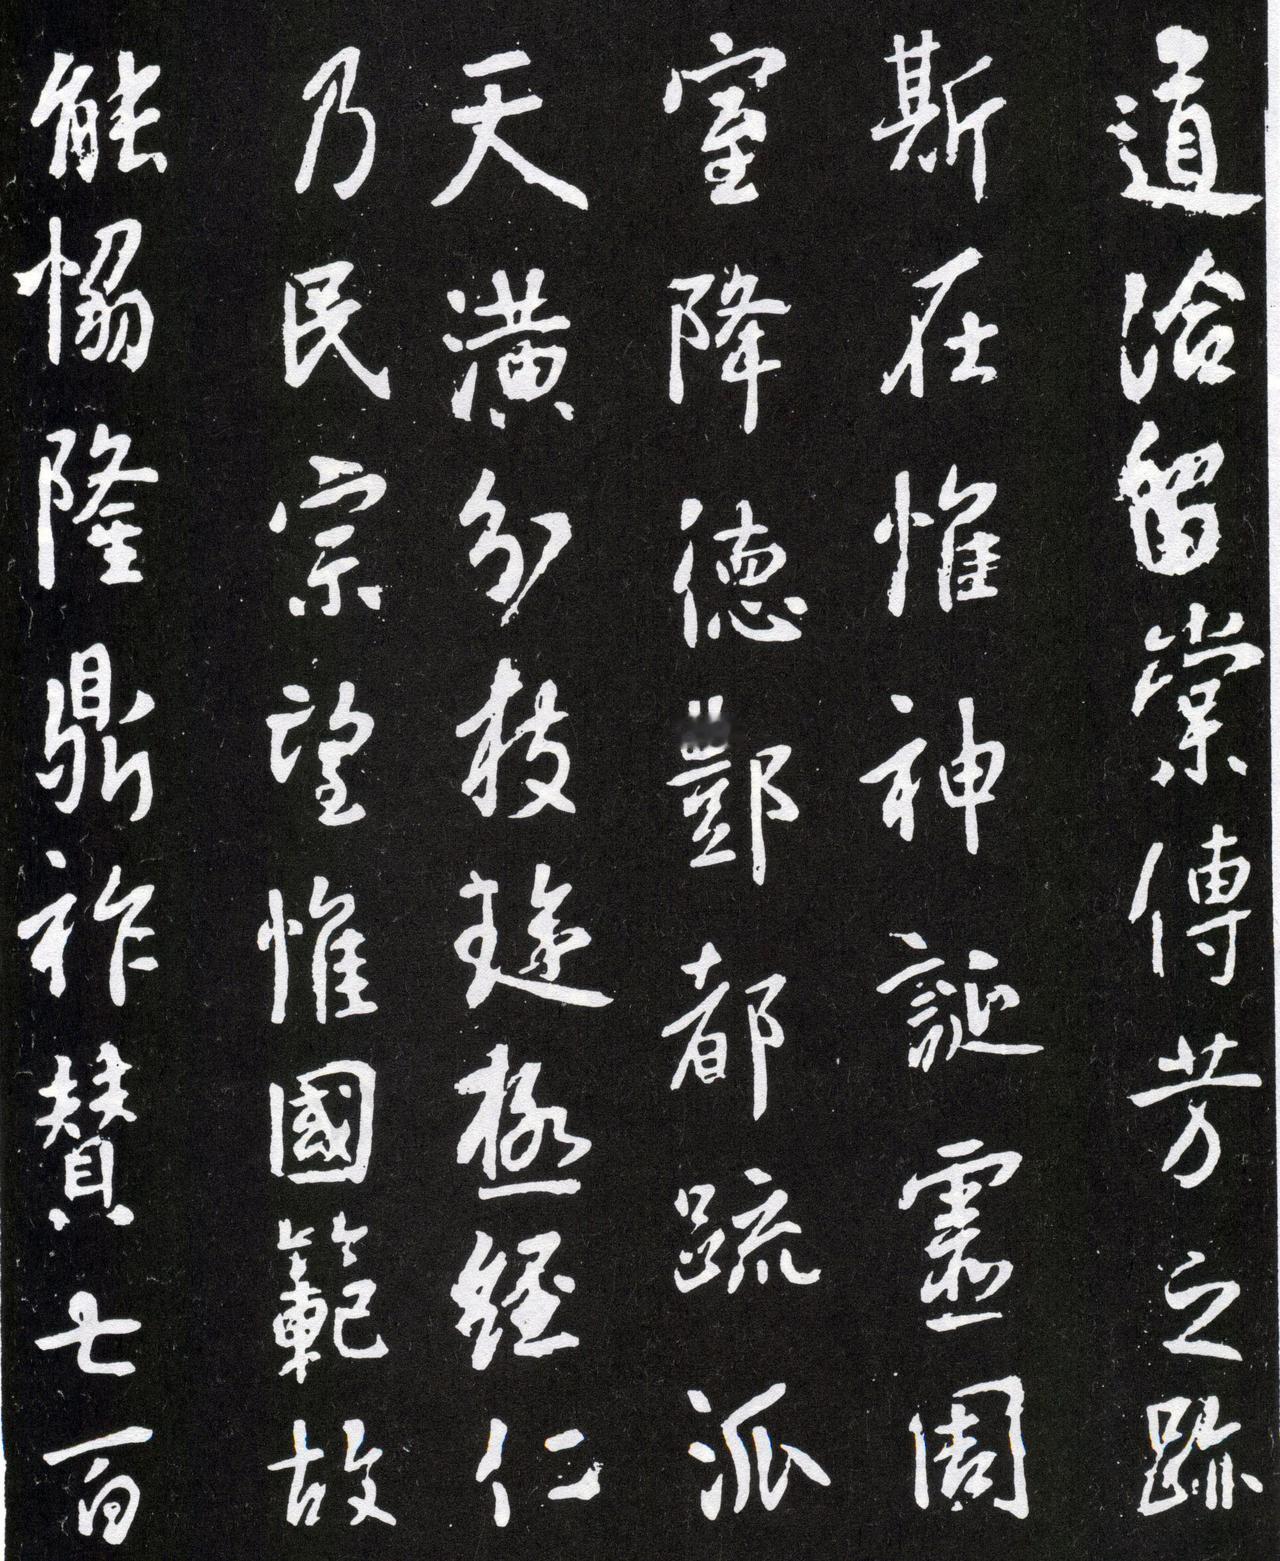 道洽留棠傳芳之跡
斯在惟神誕靈周
室降德酆都疏派
天潢分枝璇極經仁
乃民宗望惟國範故
能恊隆鼎祚贊七百